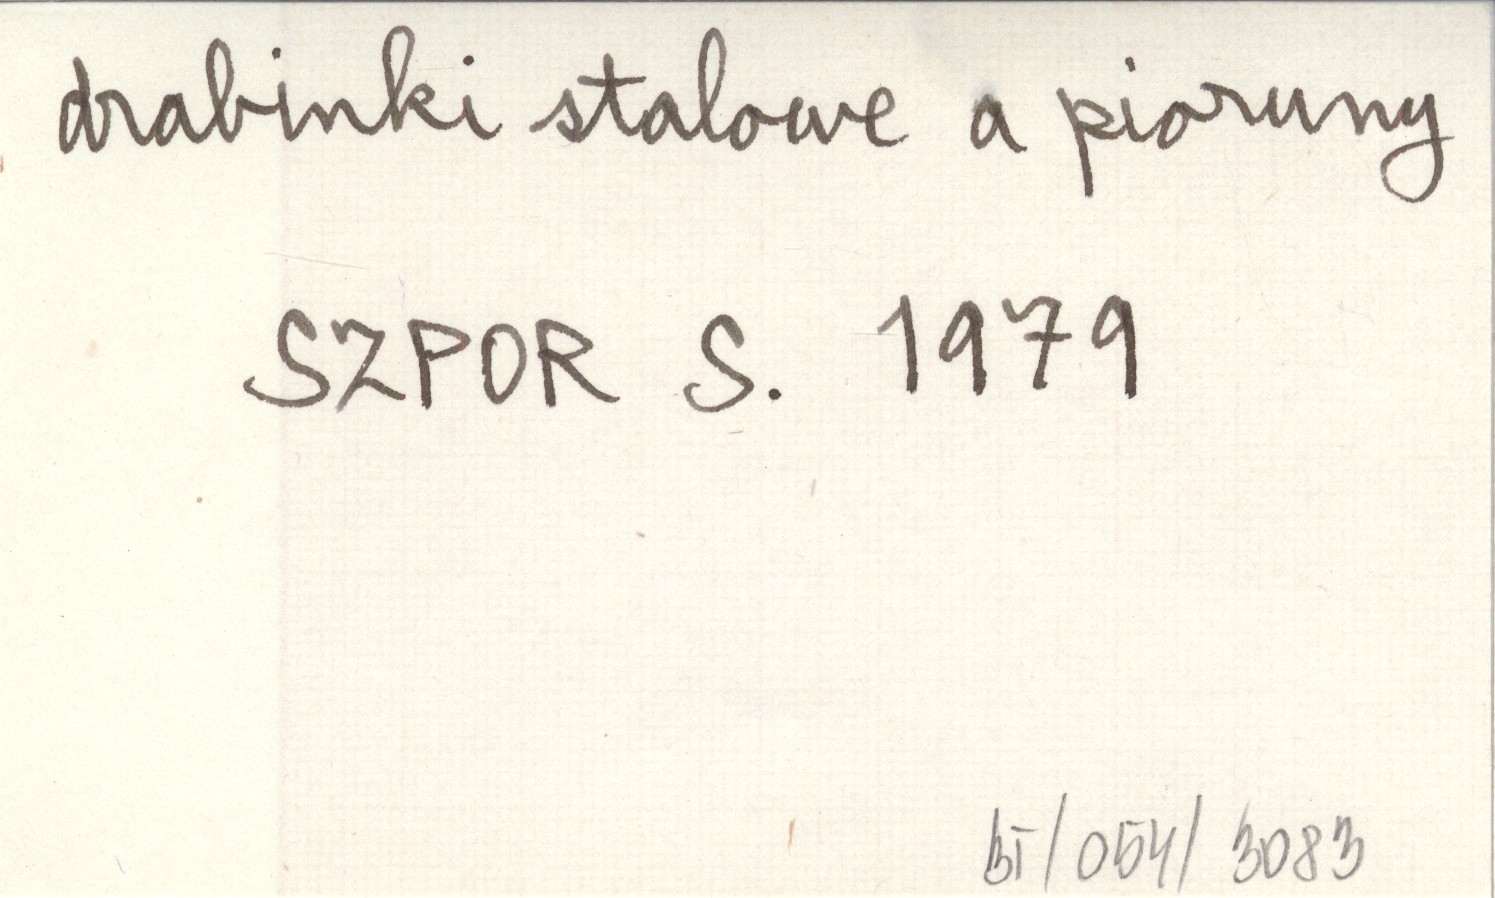 drabinki stalowe a pioruny
SZPOR S. 1979
BT/054/3083